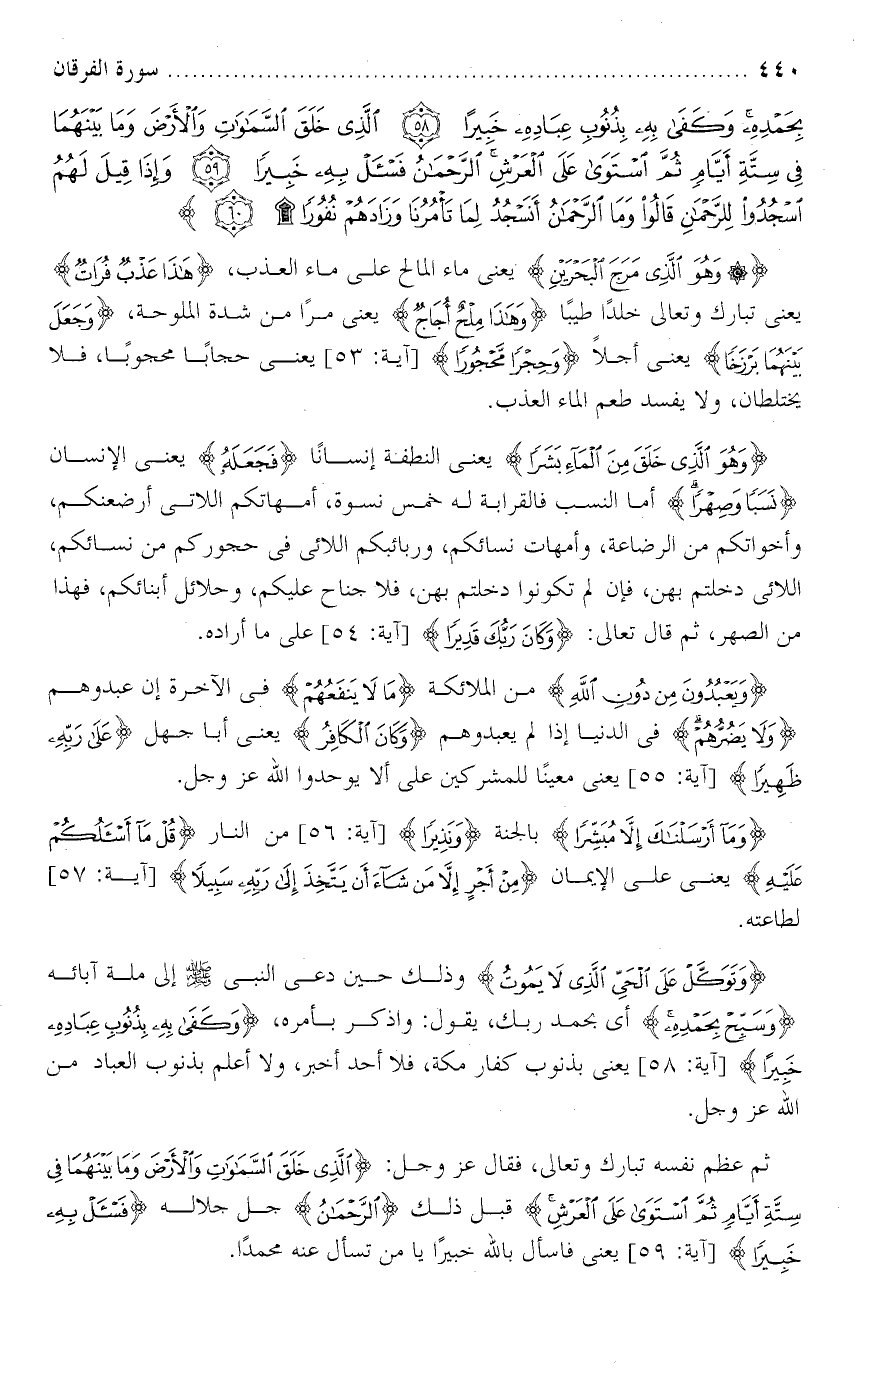 ٤٤٠ ........ سورة الفرقان
بِحَمْدِهِۦۚ وَكَفَىٰ بِهِۦ بِذُنُوبِ عِبَادِهِۦ خَبِيرًا ﴿٥٨﴾ ٱلَّذِى خَلَقَ ٱلسَّمَٰوَٰتِ وَٱلْأَرْضَ وَمَا بَيْنَهُمَا
فِى سِتَّةِ أَيَّامٍ ثُمَّ ٱسْتَوَىٰ عَلَى ٱلْعَرْشِۚ ٱلرَّحْمَٰنُ فَسْـَٔلْ بِهِۦ خَبِيرًا ﴿٥٩﴾ وَإِذَا قِيلَ لَهُمُ
ٱسْجُدُوا۟ لِلرَّحْمَٰنِ قَالُوا۟ وَمَا ٱلرَّحْمَٰنُ أَنَسْجُدُ لِمَا تَأْمُرُنَا وَزَادَهُمْ نُفُورًا ۩ ﴿٦٠﴾ ﴾
﴿۞ وَهُوَ ٱلَّذِى مَرَجَ ٱلْبَحْرَيْنِ﴾ يعنى ماء المالح على ماء العذب، ﴿هَٰذَا عَذْبٌ فُرَاتٌ﴾
يعنى تبارك وتعالى خلدًا طيبًا ﴿وَهَٰذَا مِلْحٌ أُجَاجٌ﴾ يعنى مرًا من شدة الملوحة، ﴿وَجَعَلَ
بَيْنَهُمَا بَرْزَخًا﴾ يعنى أجلاً ﴿وَحِجْرًا مَّحْجُورًا﴾ [آية: ٥٣] يعنى حجابًا محجوبًا، فلا
يختلطان، ولا يفسد طعم الماء العذب.
﴿وَهُوَ ٱلَّذِى خَلَقَ مِنَ ٱلْمَآءِ بَشَرًا﴾ يعنى النطفة إنسانًا ﴿فَجَعَلَهُۥ﴾ يعنى الإنسان
﴿نَسَبًا وَصِهْرًاۗ﴾ أما النسب فالقرابة له خمس نسوة، أمهاتكم اللاتى أرضعنكم،
وأخواتكم من الرضاعة، وأمهات نسائكم، وربائبكم اللائى فى حجوركم من نسائكم،
اللائى دخلتم بهن، فإن لم تكونوا دخلتم بهن، فلا جناح عليكم، وحلائل أبنائكم، فهذا
من الصهر، ثم قال تعالى: ﴿وَكَانَ رَبُّكَ قَدِيرًا﴾ [آية: ٥٤] على ما أراده.
﴿وَيَعْبُدُونَ مِن دُونِ ٱللَّهِ﴾ من الملائكة ﴿مَا لَا يَنفَعُهُمْ﴾ فى الآخرة إن عبدوهم
﴿وَلَا يَضُرُّهُمْۗ﴾ فى الدنيا إذا لم يعبدوهم ﴿وَكَانَ ٱلْكَافِرُ﴾ يعنى أبا جهل ﴿عَلَىٰ رَبِّهِۦ
ظَهِيرًا﴾ [آية: ٥٥] يعنى معينًا للمشركين على ألا يوحدوا الله عز وجل.
﴿وَمَآ أَرْسَلْنَٰكَ إِلَّا مُبَشِّرًا﴾ بالجنة ﴿وَنَذِيرًا﴾ [آية: ٥٦] من النار ﴿قُلْ مَآ أَسْـَٔلُكُمْ
عَلَيْهِ﴾ يعنى على الإيمان ﴿مِنْ أَجْرٍ إِلَّا مَن شَآءَ أَن يَتَّخِذَ إِلَىٰ رَبِّهِۦ سَبِيلًا﴾ [آية: ٥٧]
لطاعته.
﴿وَتَوَكَّلْ عَلَى ٱلْحَىِّ ٱلَّذِى لَا يَمُوتُ﴾ وذلك حين دعى النبى ﷺ إلى ملة آبائه
﴿وَسَبِّحْ بِحَمْدِهِۦۚ﴾ أى بحمد ربك، يقول: واذكر بأمره، ﴿وَكَفَىٰ بِهِۦ بِذُنُوبِ عِبَادِهِۦ
خَبِيرًا﴾ [آية: ٥٨] يعنى بذنوب كفار مكة، فلا أحد أخبر، ولا أعلم بذنوب العباد من
الله عز وجل.
ثم عظم نفسه تبارك وتعالى، فقال عز وجل: ﴿ٱلَّذِى خَلَقَ ٱلسَّمَٰوَٰتِ وَٱلْأَرْضَ وَمَا بَيْنَهُمَا فِى
سِتَّةِ أَيَّامٍ ثُمَّ ٱسْتَوَىٰ عَلَى ٱلْعَرْشِۚ﴾ قبل ذلك ﴿ٱلرَّحْمَٰنُ﴾ جل جلاله ﴿فَسْـَٔلْ بِهِۦ
خَبِيرًا﴾ [آية: ٥٩] يعنى فاسأل بالله خبيرًا يا من تسأل عنه محمدًا.